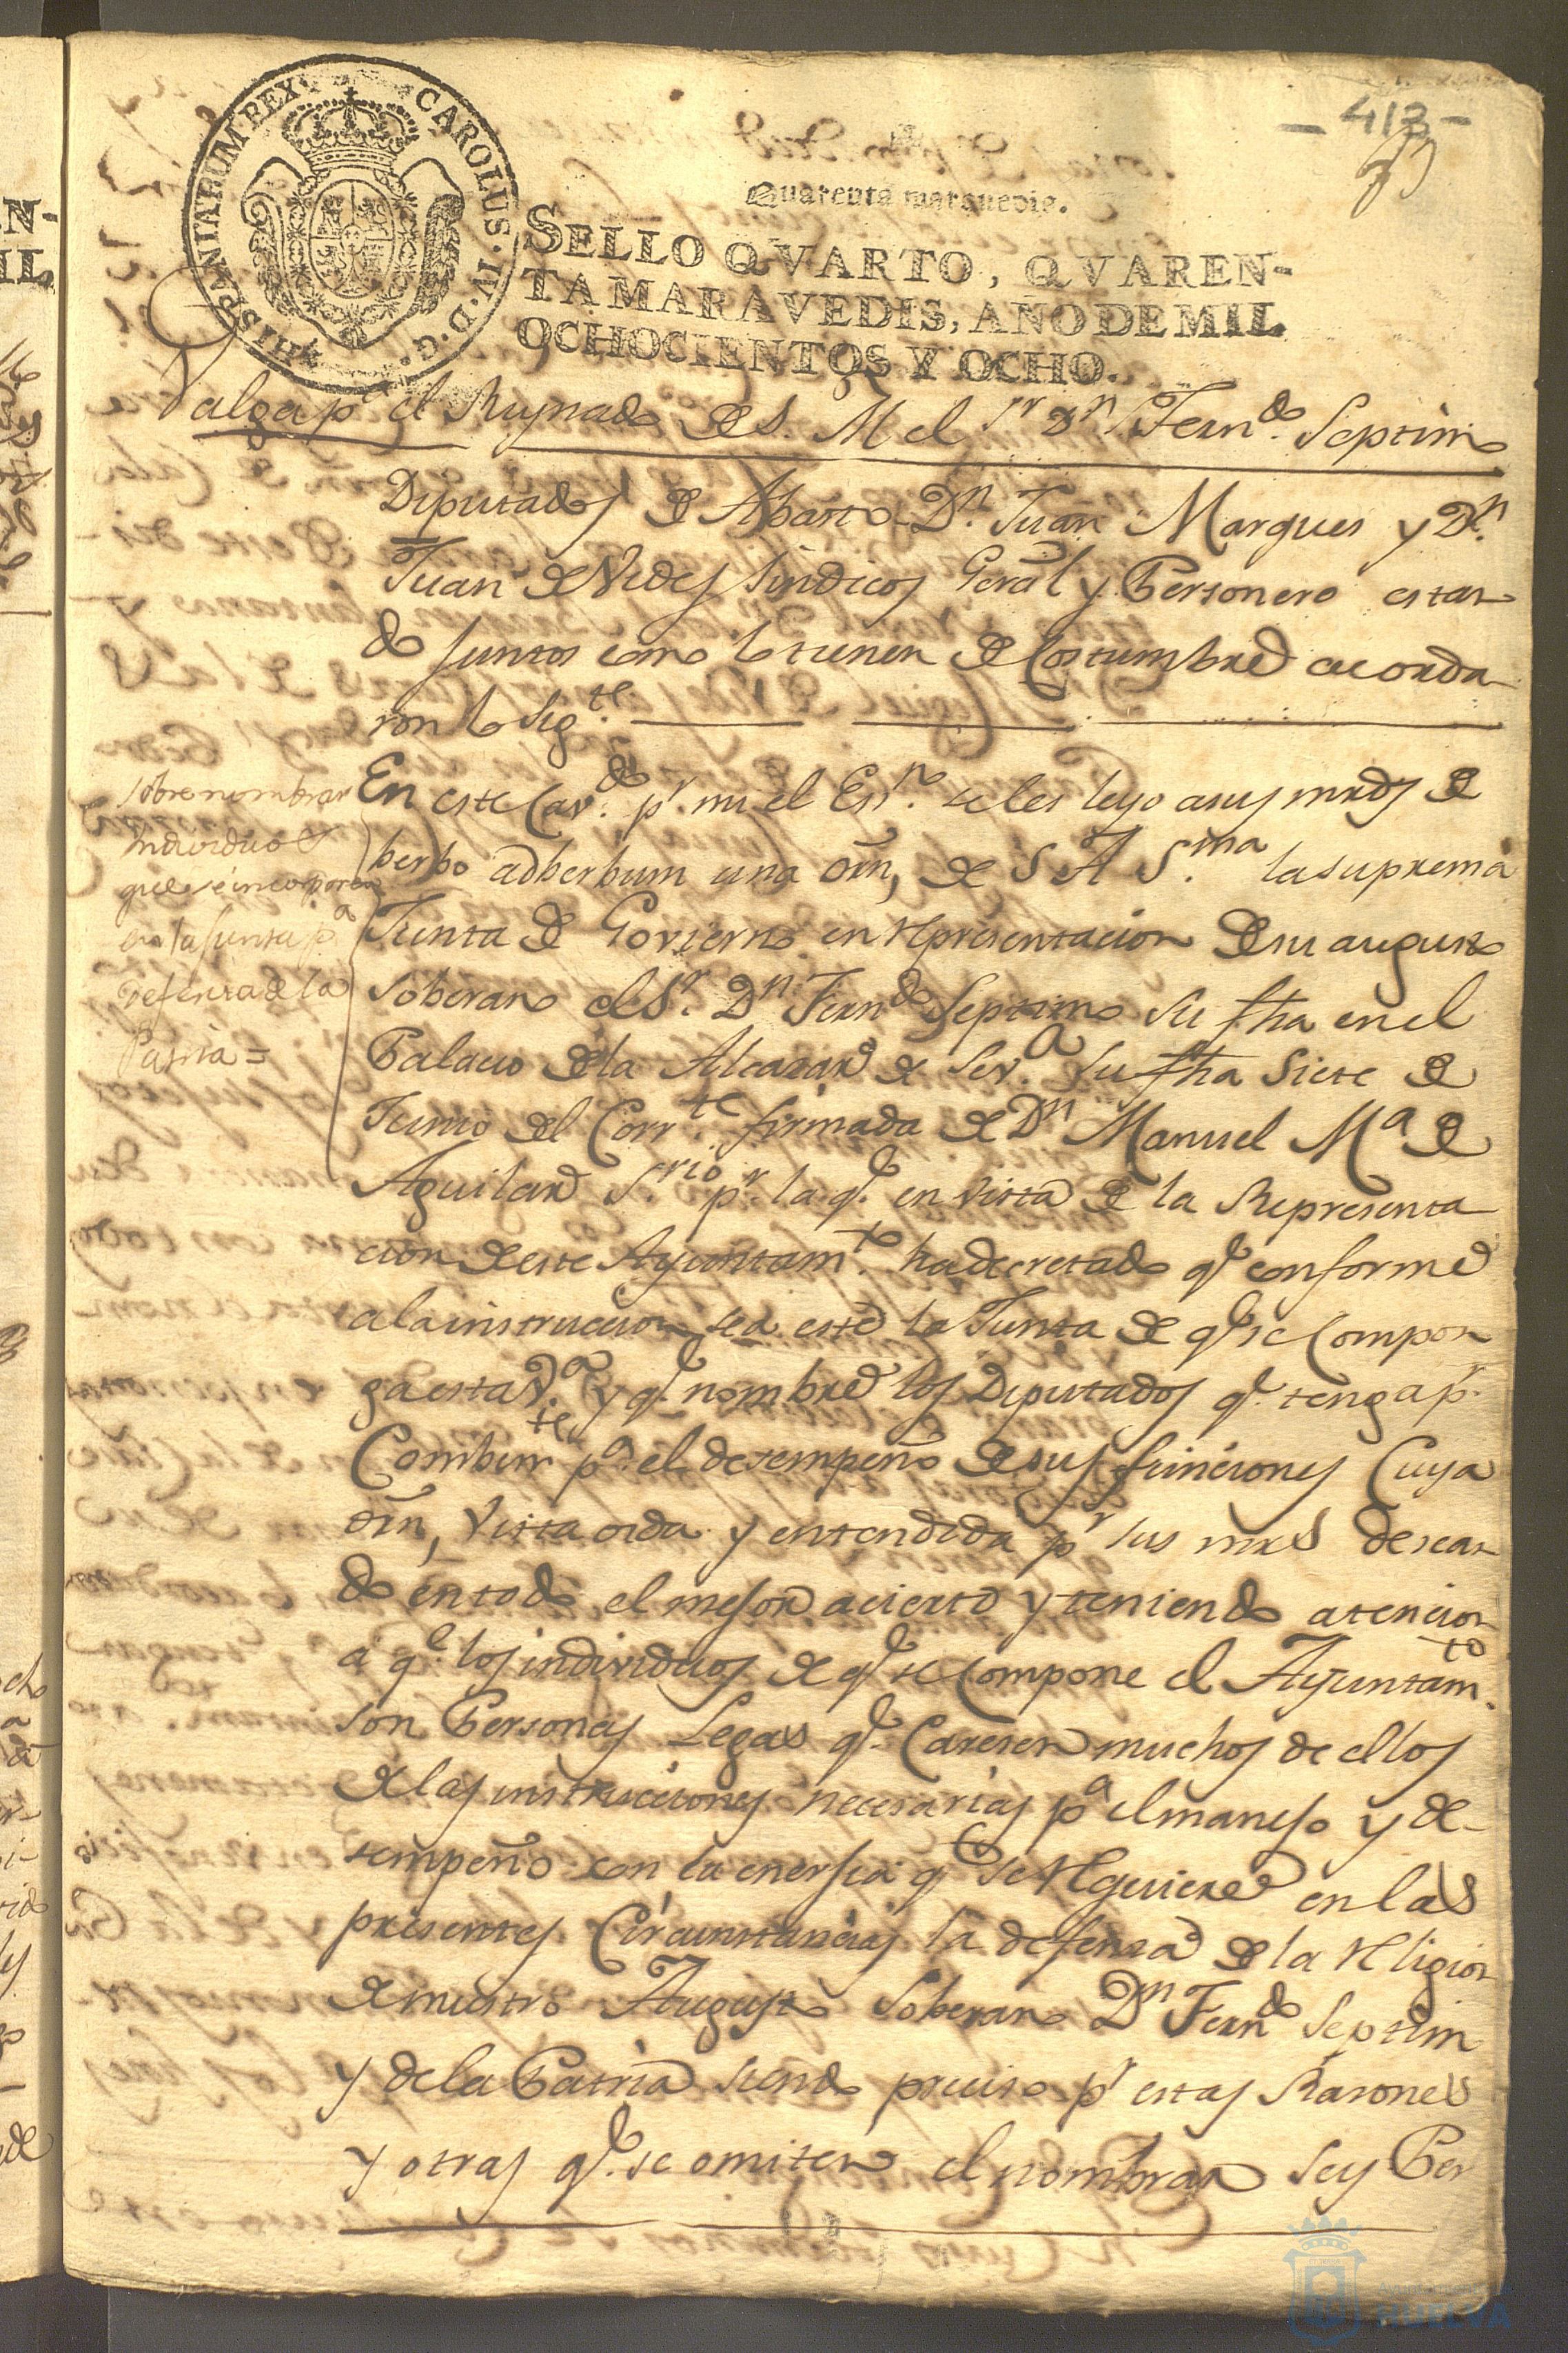 - 413 -
HISPANIARUM REX CAROLUS · IV · D · G ·
Quarenta marauedis.
SELLO QVARTO, QVAREN-
TA MARAVEDIS, AÑO DE MIL
OCHOCIENTOS Y OCHO.
Valga pª el Reynado de S. M el Sr Dn Ferndo Septimo
Diputados de Abasto Dn. Juan Marques y Dn.
Juan de Vides Sindicos Geral y Personero estan
do juntos como lo tienen de Costumbre acorda
ron lo Sigte.
sobre nombrar
individuos
que se incorporen
en la Junta pª
defensa de la
Patria =
En este Cavdo pr. mi el Esno. se les leyo a sus mrds de
berbo adberbum una orn, de S A Sma la suprema
Junta de Govierno en representacion de su augusto
soberano el Sr. Dn Ferndo Septimo Su fha en el
Palacio de la Alcazar de Sevª Su fha Siete de
Junio del Corrte firmada de Dn Manuel Mª de
Aguilar Srio pr. la q. en vista de la Representa
cion de este Ayuntamto ha decretado q. conforme
a la instruccion sea este la Junta de q. se Compon
ga esta Vª y q. nombre los Diputados q. tenga pr.
Combente pª el desempeño de sus funciones Cuya
orn, vista oida y entendida pr sus mrds desean
do en todo el mejor acierto y teniendo atencion
a q. los individuos de q. se Compone el Ayuntamto
son Personas Legas q. Caresen muchos de ellos
de las instrucciones necesarias pª el manejo y de
sempeño con la enersia q. se requiere en las
presentes Circunstancias la defensa de la religion
de nuestro Augusto Soberano Dn Ferndo Septim
y de la Patria siendo preciso pr estas Rasones
y otras q. se omiten el nombrar seis Per
HUELVA